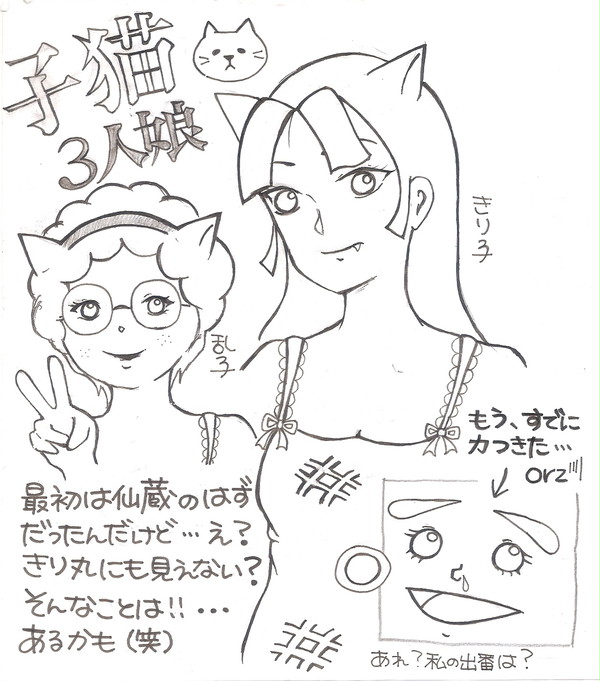 子猫
3人娘
きり子
乱子
もう、すでに
力つきた…
orz
最初は仙蔵のはず
だったんだけど…え?
きり丸にも見えない?
そんなことは!!…
あるかも(笑)
あれ?私の出番は?